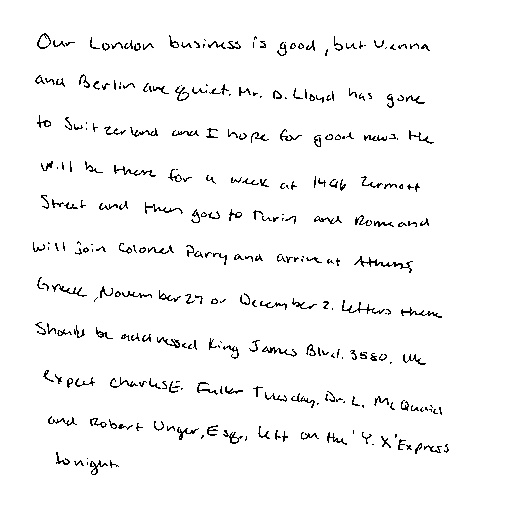 Our London business is good, but Vienna
and Berlin are quiet. Mr. D. Lloyd has gone
to Switzerland and I hope for good news. He
will be there for a week at 1496 Zermott
Street and then goes to Turin and Rome and
will join Colonel Parry and arrive at Athens,
Greece, November 27 or December 2. Letters there
Should be addressed King James Blvd. 3580. We
expect Charles E. Fuller Tuesday. Dr. L. McQuaid
and Robert Unger, Esq., left on the 'Y. X' Express
tonight.